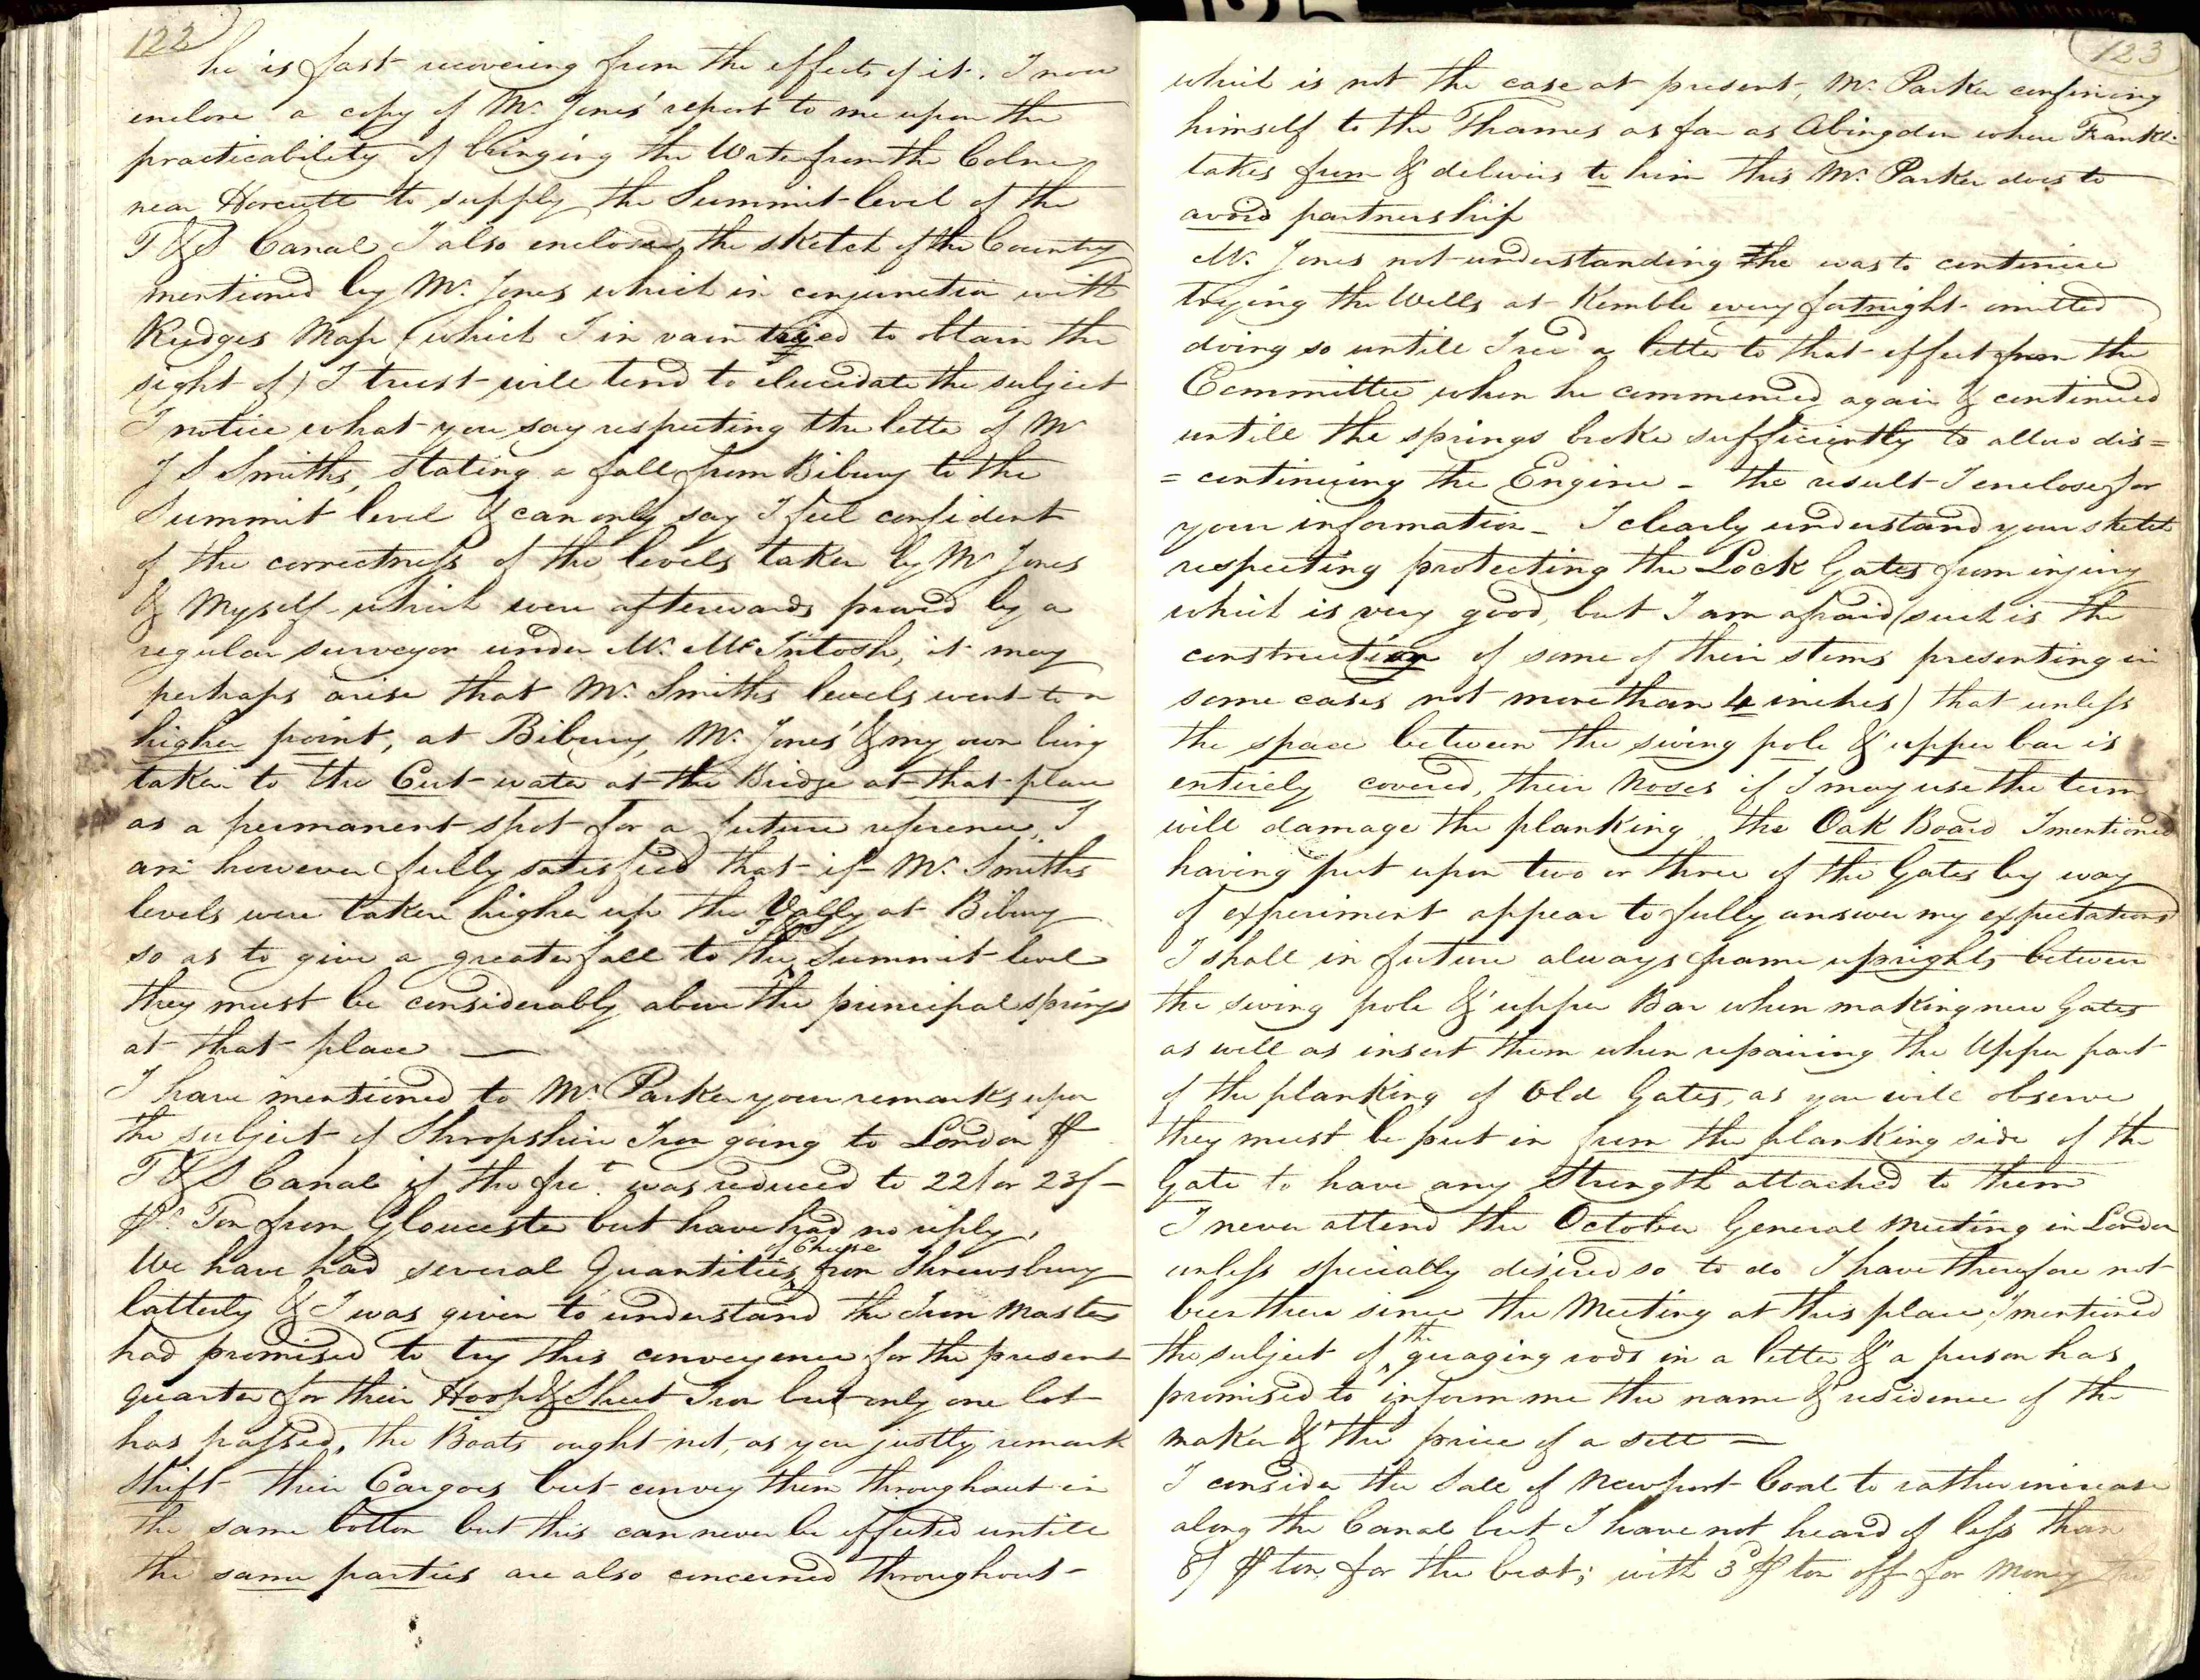 122
he is fast recovering from the effects of it. I now
enclose a copy of Mr. Jones' report to me upon the
practicability of bringing the Water from the Colne
near Horcutt to supply the Summit level of the
T & S Canal I also enclose, the sketch of the Country
mentioned by Mr. Jones which in conjunction with
Rudges Map (which I in vain tryed to obtain the
sight of) I trust will tend to elucidate the subject
I notice what you say respecting the letter of Mr
J S Smiths, stating a fall from Bibury to the
Summit level & can only say I feel confident
of the correctness of the levels taken by Mr Jones
& Myself which were afterwards proved by a
regular surveyor under Mr. McIntosh, it may
perhaps arise that Mr. Smiths levels went to a
higher point, at Bibury, Mr. Jones' & my own being
taken to the Cut-water at the Bridge at that place
as a permanent spot for a future reference, I
am however fully satisfied that if Mr. Smiths
levels were taken higher up the Vally at Bibury
so as to give a greater fall to the T & S Summit level
they must be considerably above the principal springs
at that place —
I have mentioned to Mr. Parker your remarks upon
the subject of Shropshire Iron going to London ⅌
T & S Canal if the fret. was reduced to 22/ or 23/-
⅌r. Ton from Gloucester but have had no reply,
We have had several Quantities of Cheese from Shrewsbury
latterly & I was given to understand the Iron Masters
had promised to try this conveyance for the present
quarter for their Hoop & Sheet Iron but only one lot
has passed, the Boats ought not, as you justly remark
shift their Cargoes but convey them throughout in
the same bottom but this can never be effected untill
the same parties are also concerned throughout -
123
which is not the case at present, Mr. Parker confining
himself to the Thames as far as Abingdon where Frankl:
takes from & delivers to him this Mr. Parker does to
avoid partnership
Mr. Jones not understanding he was to continue
trying the Wells at Kemble every fortnight omitted
doing so untill I recd a letter to that effect from the
Committee when he commenced again & continued
untill the springs broke sufficiently to allow dis=
=continuing the Engine - the result I enclose for
your information - I clearly understand your sketch
respecting protecting the Lock Gates from injury
which is very good, but I am afraid (such is the
construction of some of their stems presenting in
some cases not more than 4 inches) that unless
the space between the swing pole & upper bar is
entirely covered, their Noses if I may use the term
will damage the planking, the Oak Board I mentioned
having put upon two or three of the Gates by way
of experiment appear to fully answer my expectations
I shall in future always frame uprights between
the swing pole & upper Bar when making new Gates
as well as insert them when repairing the Upper part
of the planking of Old Gates, as you will observe
they must be put in from the planking side of the
Gate to have any Strength attached to them
I never attend the October General Meeting in London
unless specially desired so to do I have therefore not
been there since the Meeting at this place, I mentioned
the subject of the guaging rods in a letter & a person has
promised to inform me the name & residence of the
maker & the price of a sett —
I consider the Sale of Newport Coal to rather increase
along the Canal but I have not heard of less than
8/ ⅌ ton, for the best; with 3d ⅌ ton off for Money